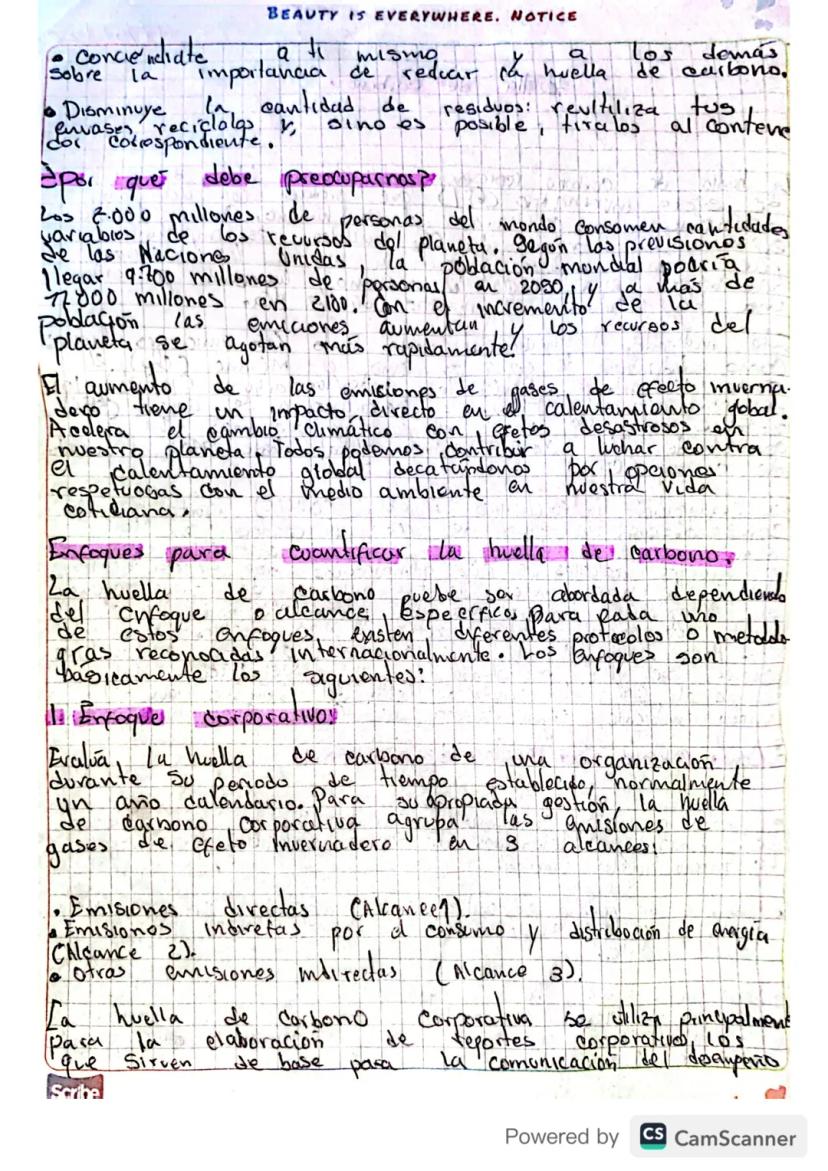 BEAUTY IS EVERYWHERE. NOTICE
• Conciendiate a ti mismo y a los demás
sobre la importancia de reducir la huella de carbono.
• Disminuye la cantidad de residuos: reutiliza tus
envases, reciclolas y, sino es posible, tiralos al contene
dor correspondiente.
¿Por qué debe preocuparnos?
Los 7.000 millones de personas del mondo consomen cantidades
variables de los recursos del planeta. Según las previsiones
de las Naciones Unidas, la población mundial podría
llegar 9.700 millones de personas en 2050, y a más de
11.000 millones en 2100. Con el incremento de la
población las emiciones aumentan y los recursos del
planeta se agotan más rapidamente.
El aumento de las emisiones de gases de efecto inverna-
dero tiene un impacto directo en el calentamiento gobal.
Acelera el cambio climático con efetos desastrosos en
nuestro planeta, Todos podemos contribuir a luchar contra
el calentamiento global decatándonos por opciones
respetuosas con el medio ambiente en nuestra vida
cotidiana.
Enfoques para cuantificar la huella de carbono.
La huella de carbono puebe ser abordada dependiendo
del enfoque o alcance, Específico, para cada uno
de estos enfoques, existen diferentes protocolos o metodolo
gías reconocidas internacionalmente. Los enfoques son
básicamente los siguientes:
1. Enfoque corporativo:
Evalúa, la huella de carbono de una organización,
durante su periodo de tiempo establecido, normalmente
un año calendario. Para su apropiada gestión, la huella
de carbono corporativa agrupa las emisiones de
gases de efeto Invernadero en 3 alcances:
• Emisiones directas (Alcance 1).
• Emisiones indiretas por el consumo y distriboción de energía
(Alcance 2).
• Otras emisiones indirectas (Alcance 3).
La huella de carbono corporativa se utiliza principalment
para la elaboración de reportes corporativos, los
que sirven de base para la comunicación del desempeño
Scribe
Powered by CS CamScanner